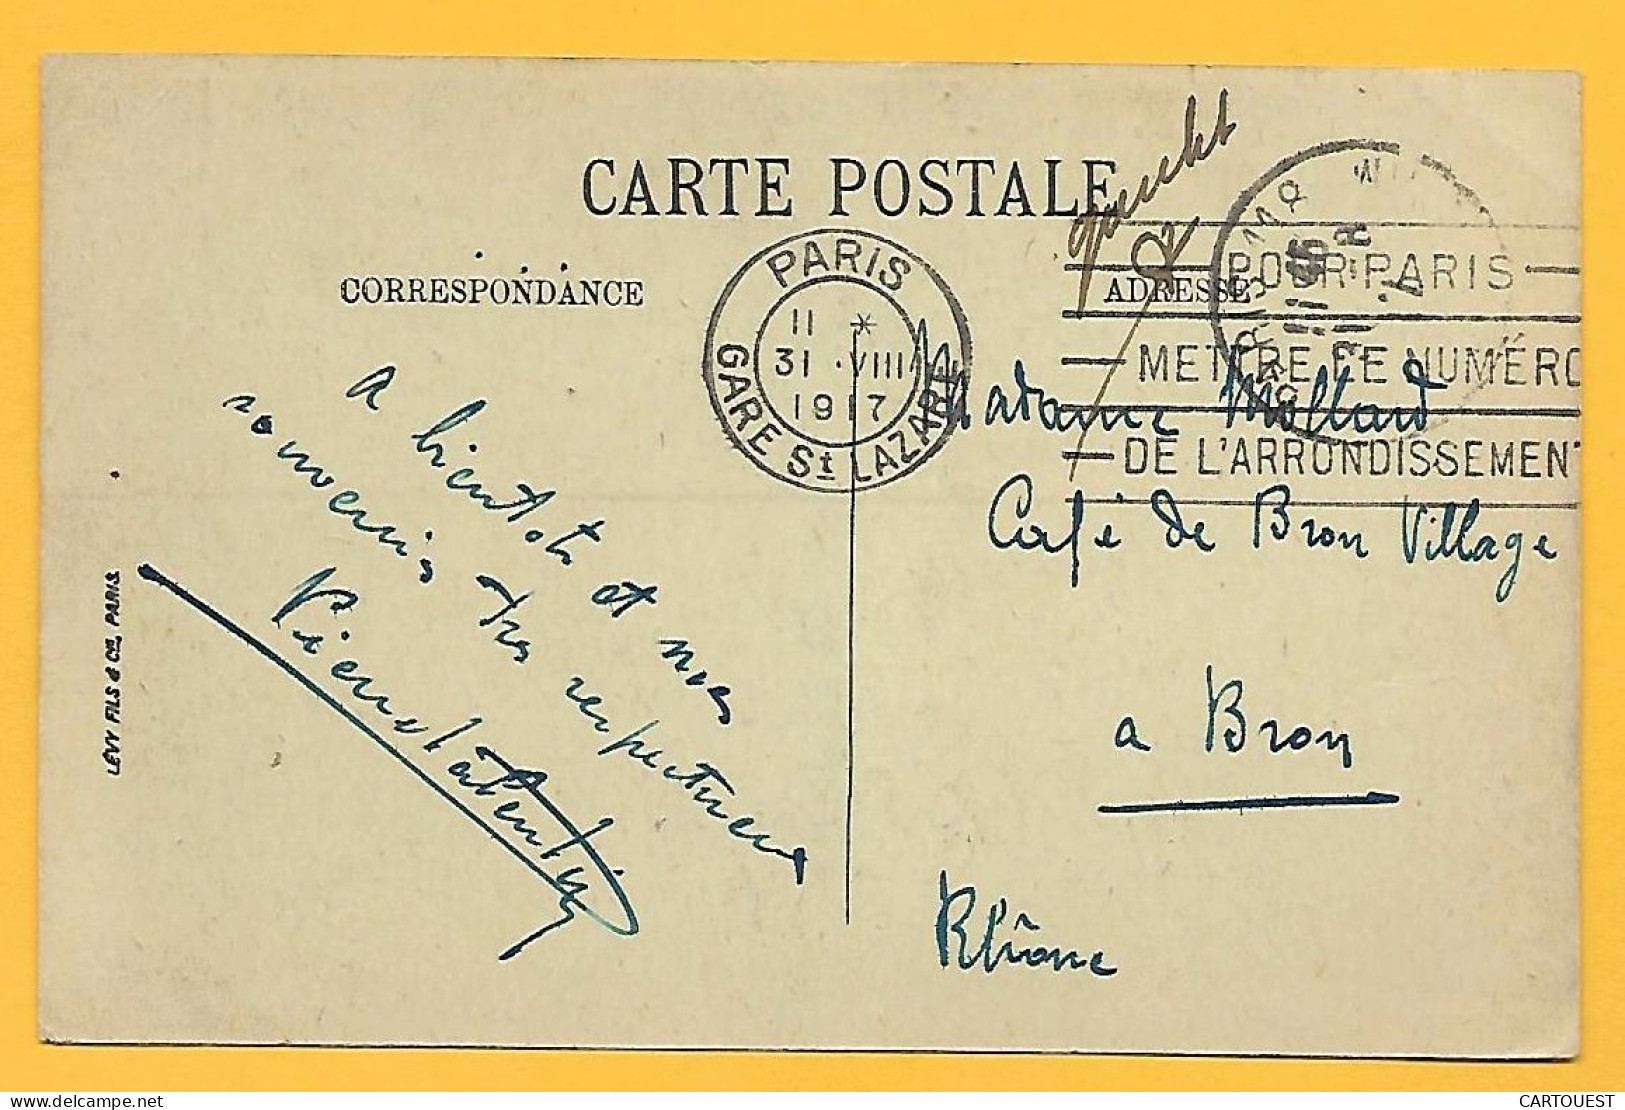 CARTE POSTALE
CORRESPONDANCE
ADRESSE
PARIS
11 *
31 · VIII
1917
GARE St LAZARE
POUR PARIS
METTRE LE NUMÉRO
DE L'ARRONDISSEMENT
A bientôt et nos
souvenirs très respectueux
Madame Mollard
Café de Bron Village
a Bron
Rhône
LÉVY FILS & Cie, PARIS.
delcampe.net
CARTOUEST